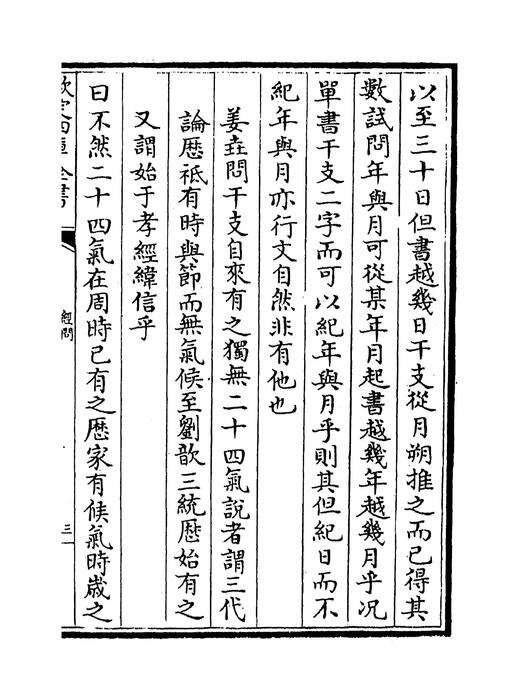 以至三十日但書越幾日干支從月朔推之而已得其
數試問年與月可從某年月起書越幾年越幾月乎况
單書干支二字而可以紀年與月乎則其但紀日而不
紀年與月亦行文自然非有他也
姜垚問干支自來有之獨無二十四氣說者謂三代
論歴祗有時與節而無氣候至劉歆三統歴始有之
又謂始于孝經緯信乎
曰不然二十四氣在周時已有之歴家有候氣時歳之
欽定四庫全書
經問